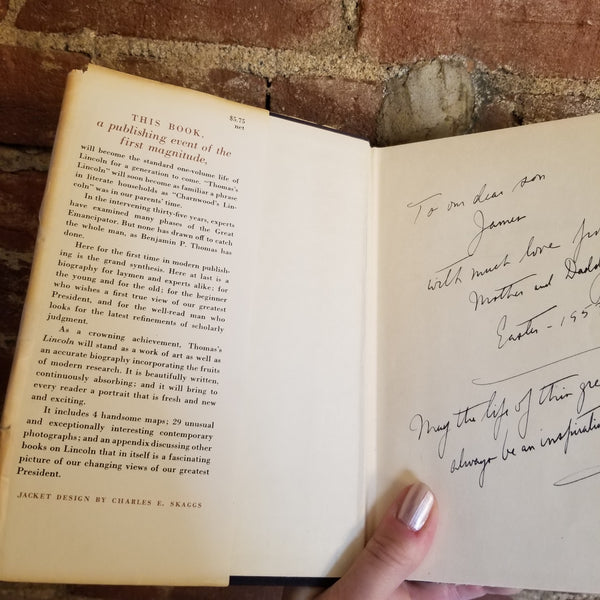 THIS BOOK,
a publishing event of the
first magnitude,
$5.75
net
will become the standard one-volume life of
Lincoln for a generation to come. "Thomas's
Lincoln" will soon become as familiar a phrase
in literate households as "Charnwood's Lin-
coln" was in our parents' time.
In the intervening thirty-five years, experts
have examined many phases of the Great
Emancipator. But none has drawn off to catch
the whole man, as Benjamin P. Thomas has
done.
Here for the first time in modern publish-
ing is the grand synthesis. Here at last is a
biography for laymen and experts alike; for
the young and for the old; for the beginner
who wishes a first true view of our greatest
President, and for the well-read man who
looks for the latest refinements of scholarly
judgment.
As a crowning achievement, Thomas's
Lincoln will stand as a work of art as well as
an accurate biography incorporating the fruits
of modern research. It is beautifully written,
continuously absorbing; and it will bring to
every reader a portrait that is fresh and new
and exciting.
It includes 4 handsome maps; 29 unusual
and exceptionally interesting contemporary
photographs; and an appendix discussing other
books on Lincoln that in itself is a fascinating
picture of our changing views of our greatest
President.
JACKET DESIGN BY CHARLES E. SKAGGS
To our dear son
James
with much love
Mother and Dadd
Easter - 195
May the life of this gre
always be an inspiratio